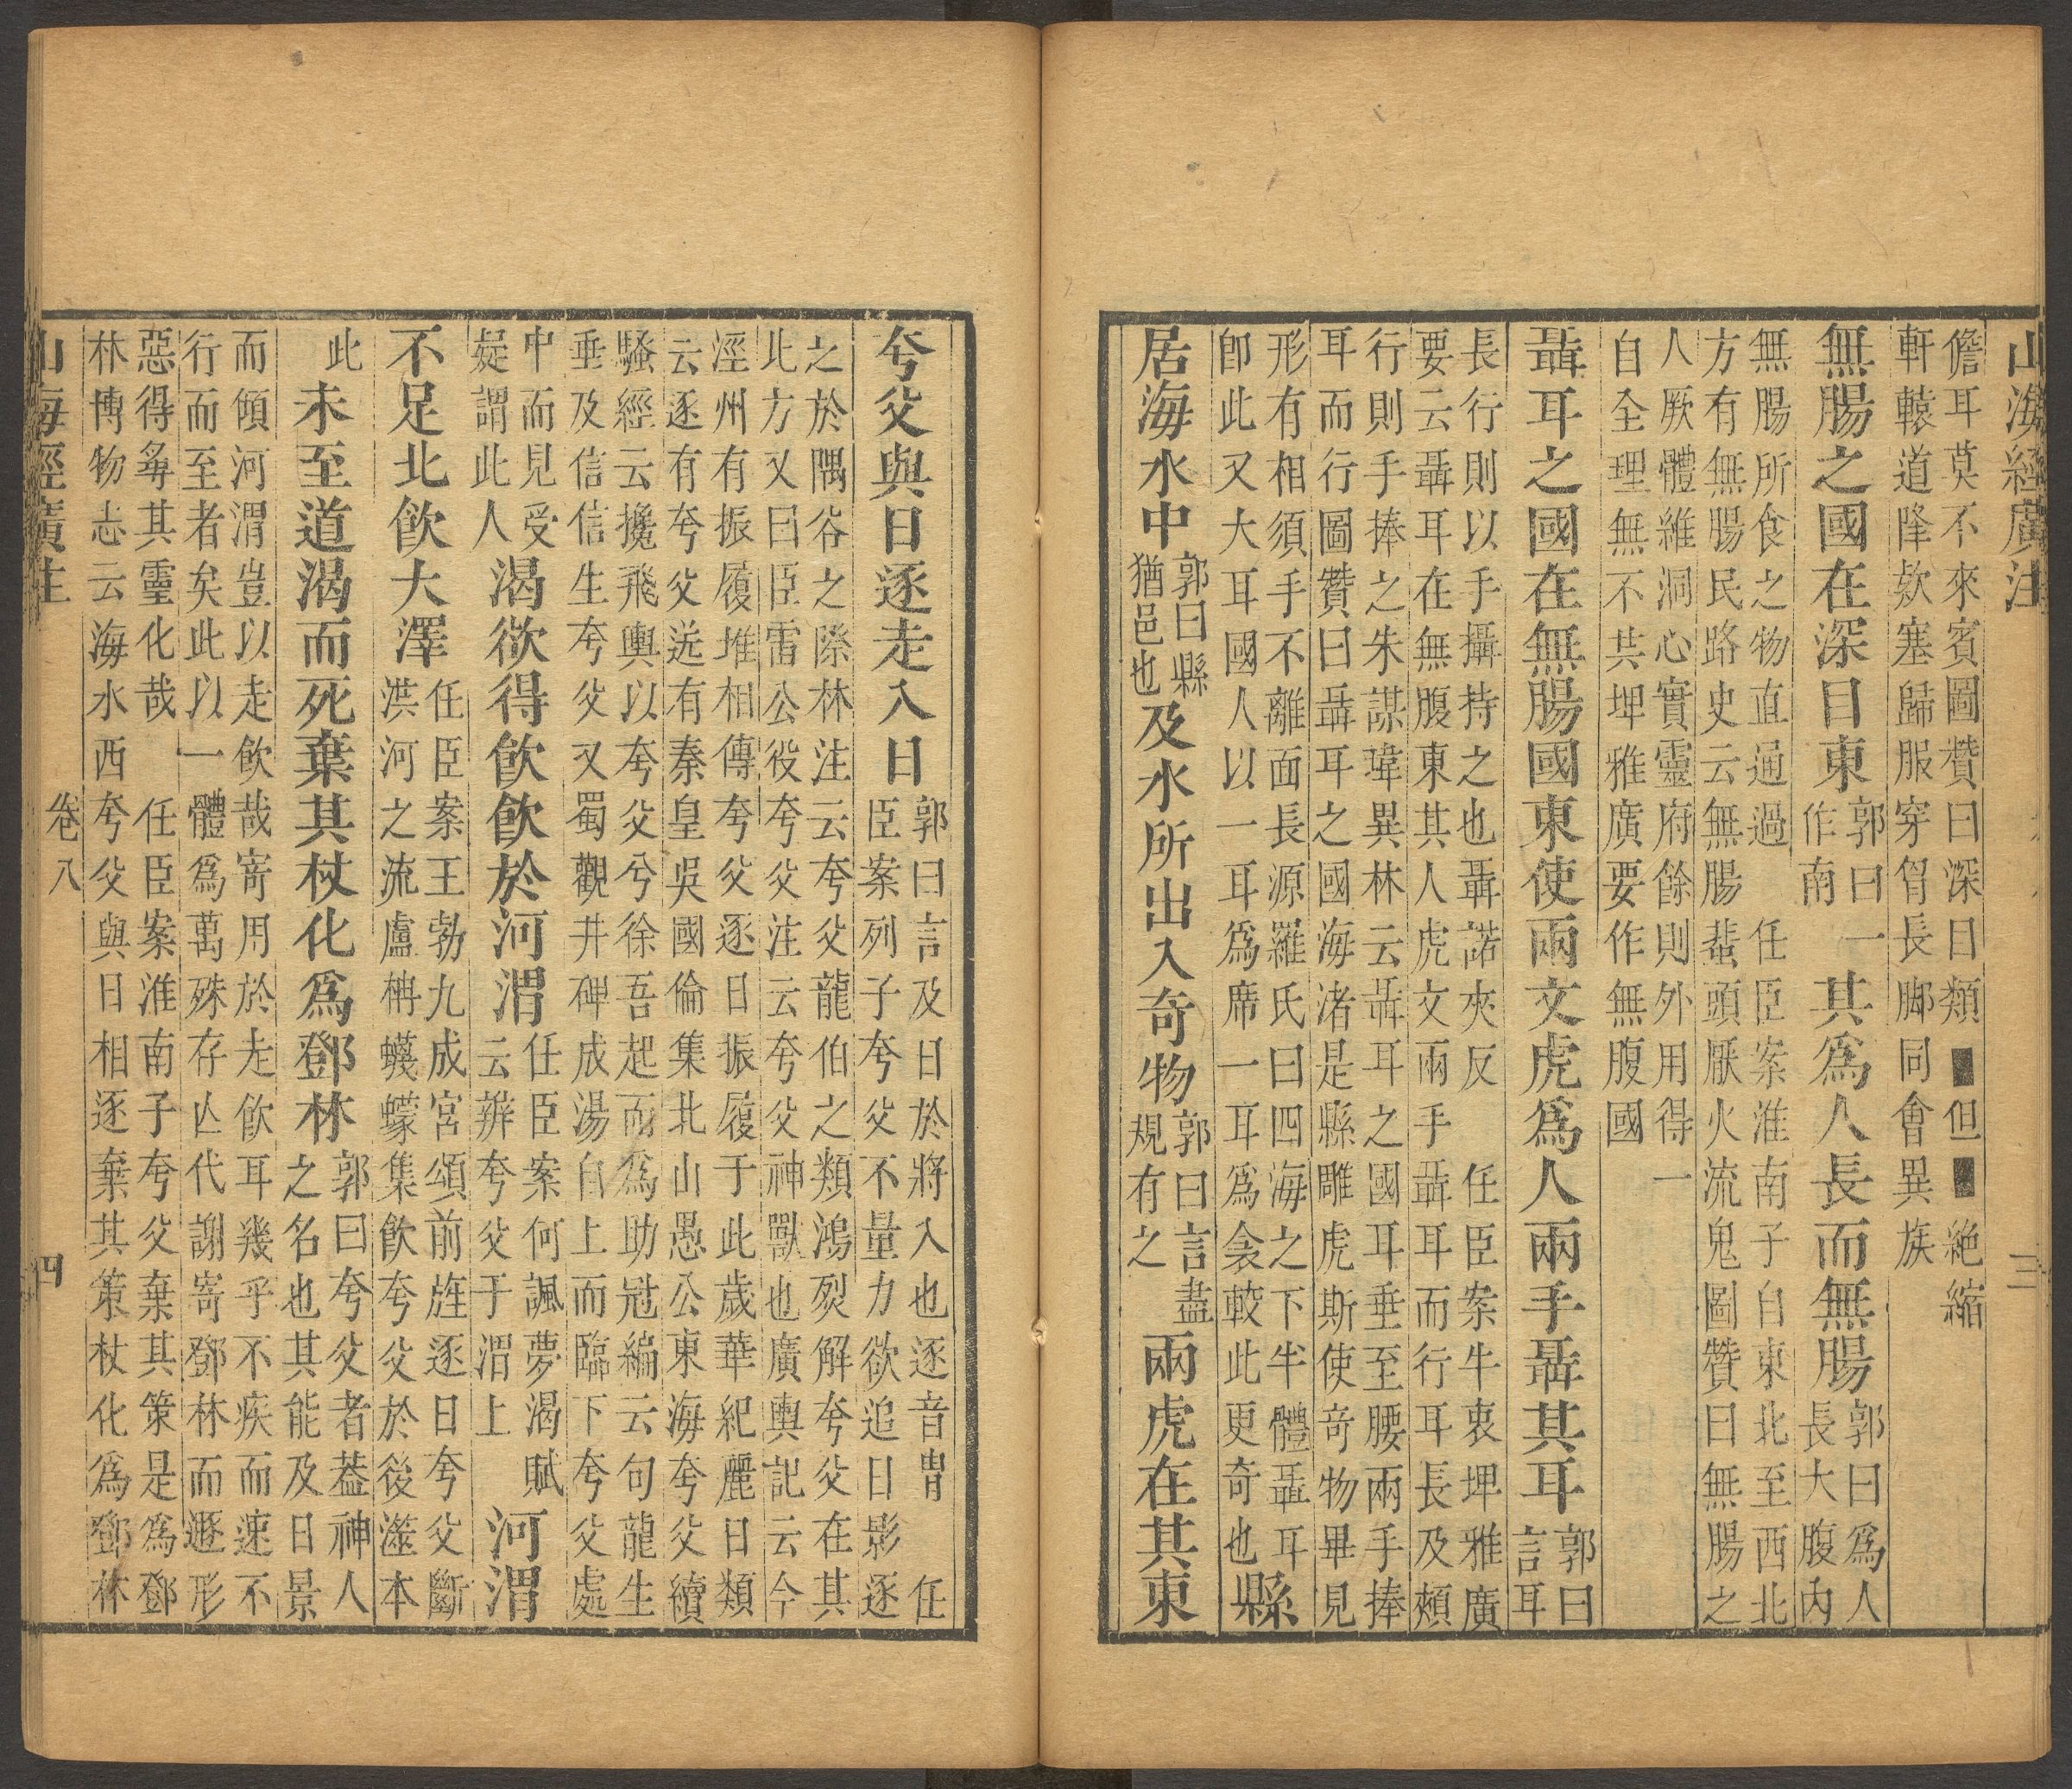 山海經廣注 三
儋耳莫不來賓圖贊曰深目類■但■絶縮
軒轅道降欵塞歸服穿胷長脚同會異族
無腸之國在深目東 郭曰一作南 其爲人長而無腸 郭曰爲人長大腹內
無腸所食之物直通過 任臣案淮南子自東北至西北
方有無腸民路史云無腸蜚頭厭火流鬼圖贊曰無腸之
人厥體維洞心實靈府餘則外用得一
自全理無不共埤雅廣要作無腹國
聶耳之國在無腸國東使兩文虎爲人兩手聶其耳 郭曰言耳
長行則以手攝持之也聶諾夾反 任臣案牛衷埤雅廣
要云聶耳在無腹東其人虎文兩手聶耳而行耳長及頰
行則手捧之朱謀㙔異林云聶耳之國耳垂至腰兩手捧
耳而行圖贊曰聶耳之國海渚是縣雕虎斯使奇物畢見
形有相須手不離面長源羅氏曰四海之下半體聶耳
卽此又大耳國人以一耳爲席一耳爲衾較此更奇也 縣
居海水中 郭曰縣猶邑也 及水所出入奇物 郭曰言盡規有之 兩虎在其東
夸父與日逐走入日 郭曰言及日於將入也逐音胄 任臣案列子夸父不量力欲追日影逐
之於隅谷之際林注云夸父龍伯之類鴻烈解夸父在其
此方又曰臣雷公役夸父注云夸父神獸也廣輿記云今
涇州有振履堆相傳夸父逐日振履于此歲華紀麗日類
云逐有夸父遊有秦皇吳國倫集北山愚公東海夸父續
騷經云攙飛輿以夸父兮徐吾起而爲助冠編云句龍生
垂及信信生夸父又蜀觀井碑成湯自上而臨下夸父處
中而見受疑謂此人 渴欲得飲飲於河渭 任臣案何諷夢渴賦云辨夸父于渭上 河渭
不足北飲大澤 任臣案王勃九成宮頌前旌逐日夸父斷洪河之流盧柟蠛蠓集飲夸父於後澨本
此 未至道渴而死棄其杖化爲鄧林 郭曰夸父者葢神人之名也其能及日景
而傾河渭豈以走飲哉寄用於走飲耳幾乎不疾而速不
行而至者矣此以一體爲萬殊存亾代謝寄鄧林而遯形
惡得尋其靈化哉 任臣案淮南子夸父棄其策是爲鄧
林博物志云海水西夸父與日相逐棄其策杖化爲鄧林
山海經廣注 卷八 四